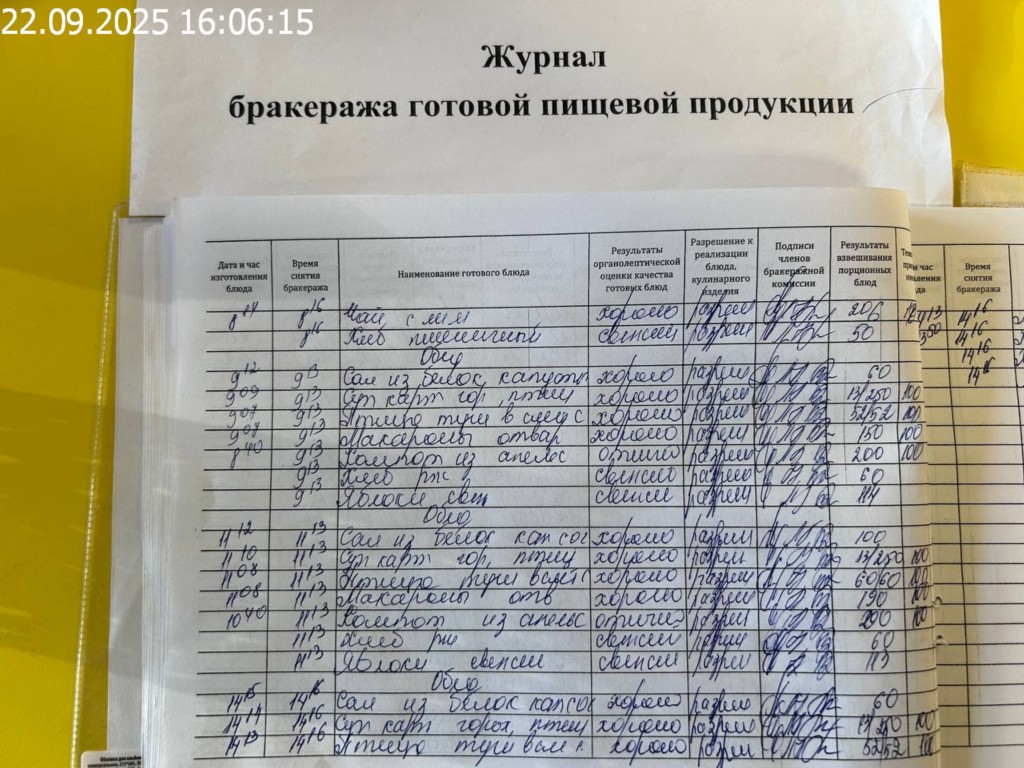 22.09.2025 16:06:15
Журнал
бракеража готовой пищевой продукции
Дата и час изготовления блюда Время снятия бракеража Наименование готового блюда Результаты органолептической оценки качества готовых блюд Разрешение к реализации блюда, кулинарного изделия Подписи членов бракеражной комиссии Результаты взвешивания порционных блюд Время снятия бракеража
8 16 Чай с лим хорошо разреш 206
8 16 Хлеб пшеничный свежий разреш 50
Обед
9 12 9 13 Сал из белок, капусты хорошо разреш 60
9 09 9 13 Суп карт гор, птиц хорошо разреш 13/250 100
9 13 Птица туш в соусе хорошо разреш 52/52 100
9 13 Макароны отвар хорошо разреш 150 100
8 40 9 13 Компот из апельс отлично разреш 200 100
9 13 Хлеб рж свежий разреш 60
9 13 Яблоки свеж свежие разреш 114
Обед
11 12 11 13 Сал из белок кап хорошо разреш 100
11 10 11 13 Суп карт гор, птиц хорошо разреш 13/250 100
11 08 11 13 Птица туш хорошо разреш 60/60 100
11 08 11 13 Макароны отв хорошо разреш 190 100
10 40 11 13 Компот из апельс отлич разреш 200 100
11 13 Хлеб рж свежий разреш 60
11 13 Яблоки свежие свежие разреш 113
Обед
14 15 14 16 Сал из белок кап хорошо разреш 60
14 14 14 16 Суп карт горох, птиц хорошо разреш 13/250 100
14 13 14 16 Птица туш хорошо разреш 52/52 100
14 16
14 16
14 16
14 16